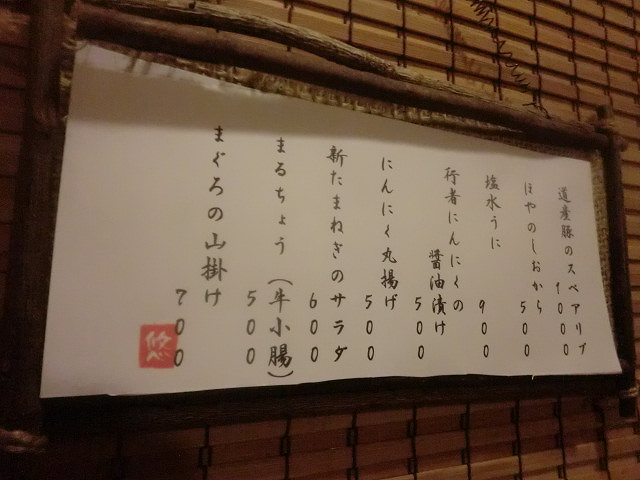 道産豚のスペアリブ
1000
ほやのしおから
500
塩水うに
900
行者にんにくの
醤油漬け
500
にんにく丸揚げ
500
新たまねぎのサラダ
600
まるちょう(牛小腸)
500
まぐろの山掛け
700